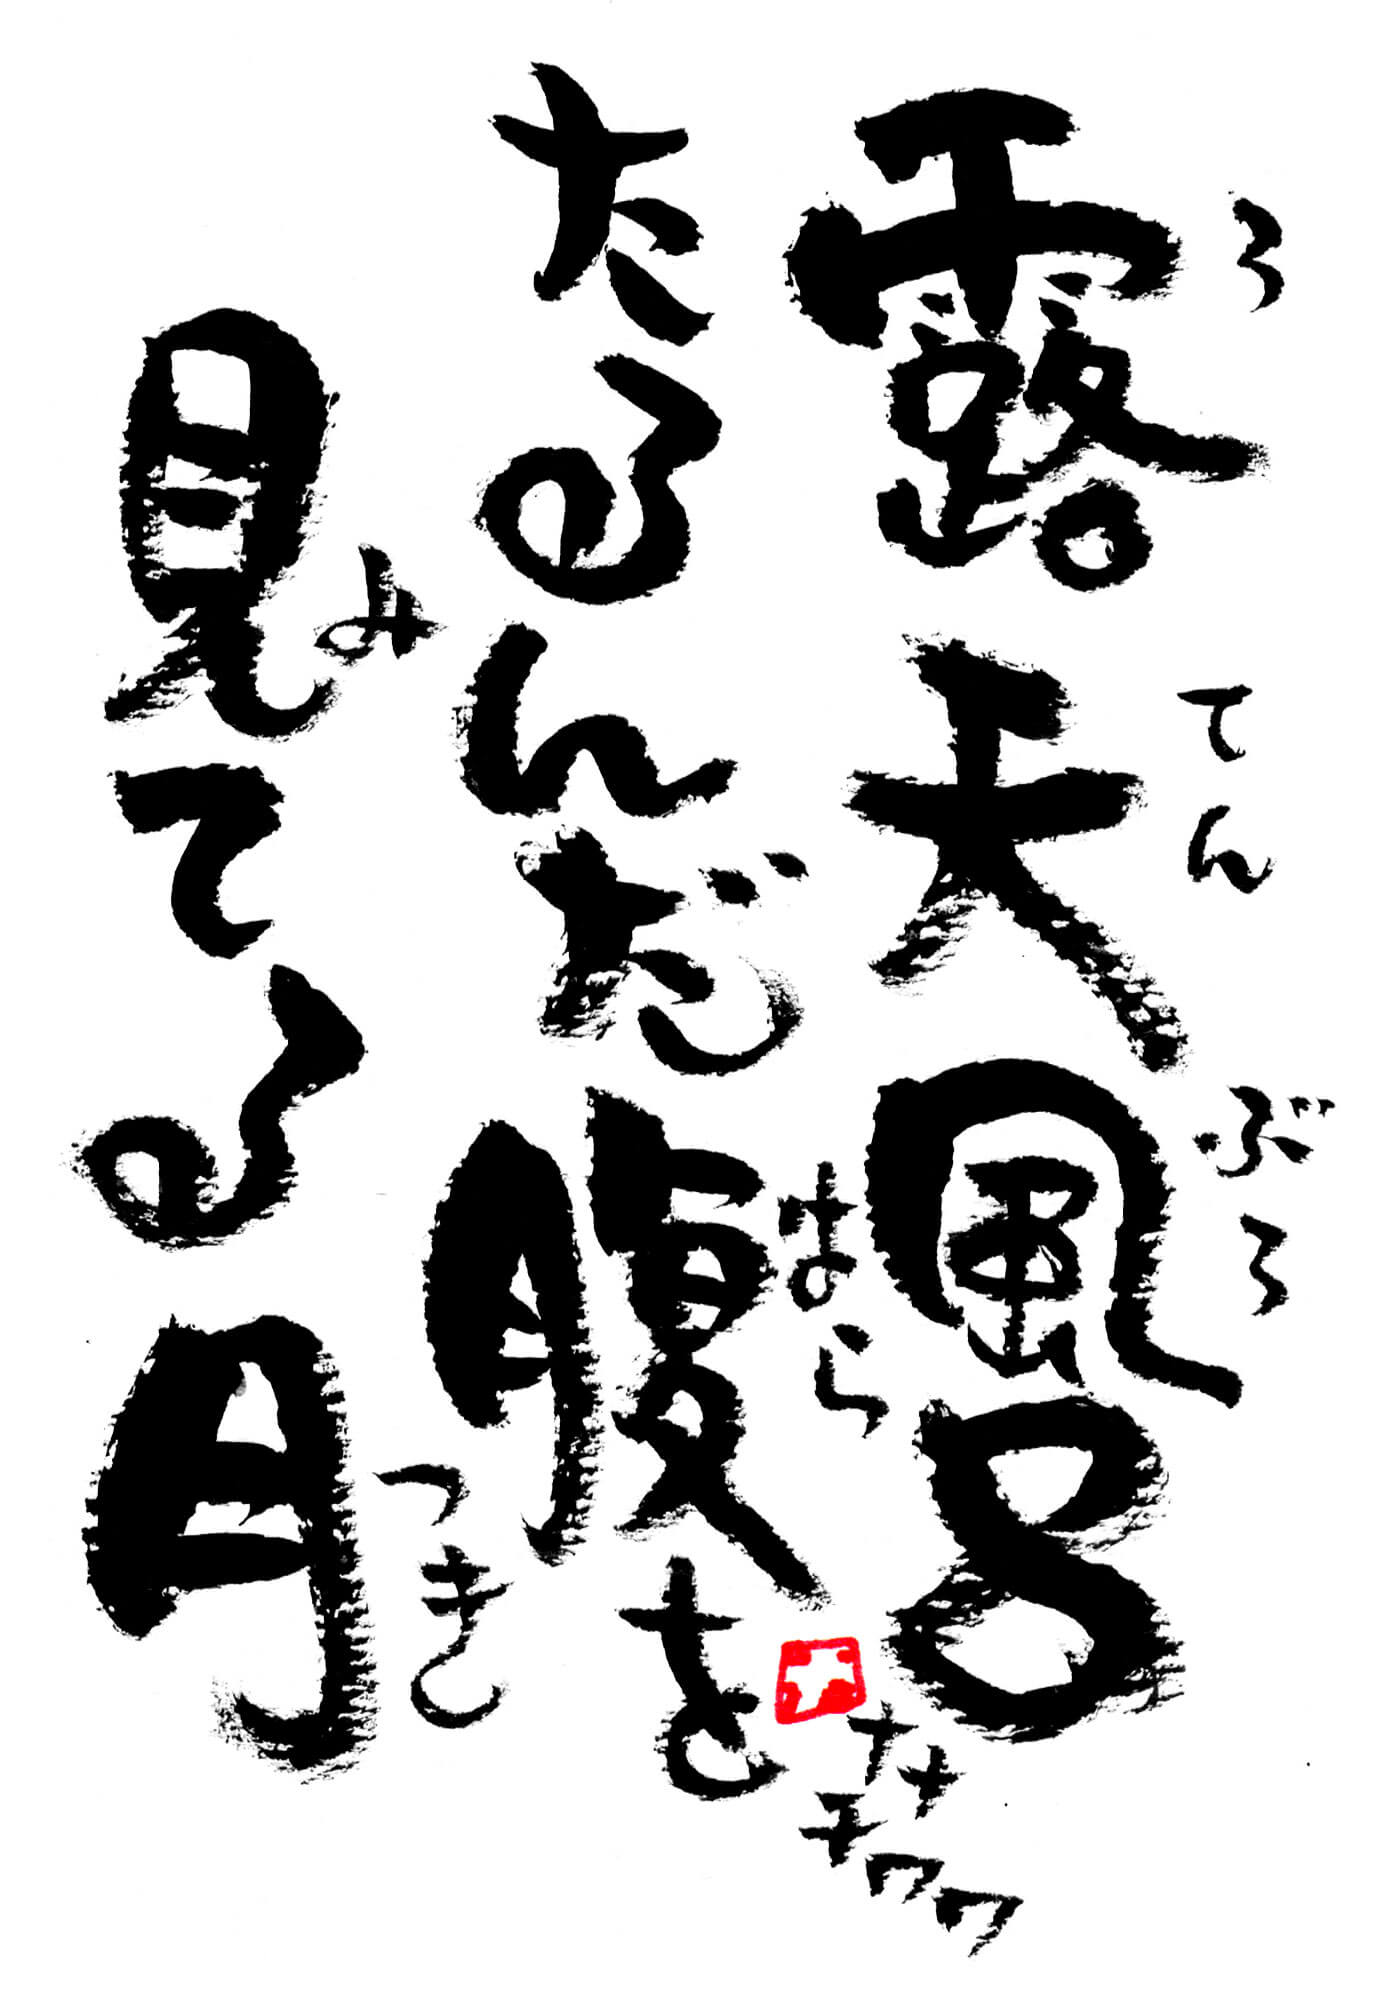 露天風呂
ろ てん ぶろ
たるんだ腹を
はら
見てる月
み つき